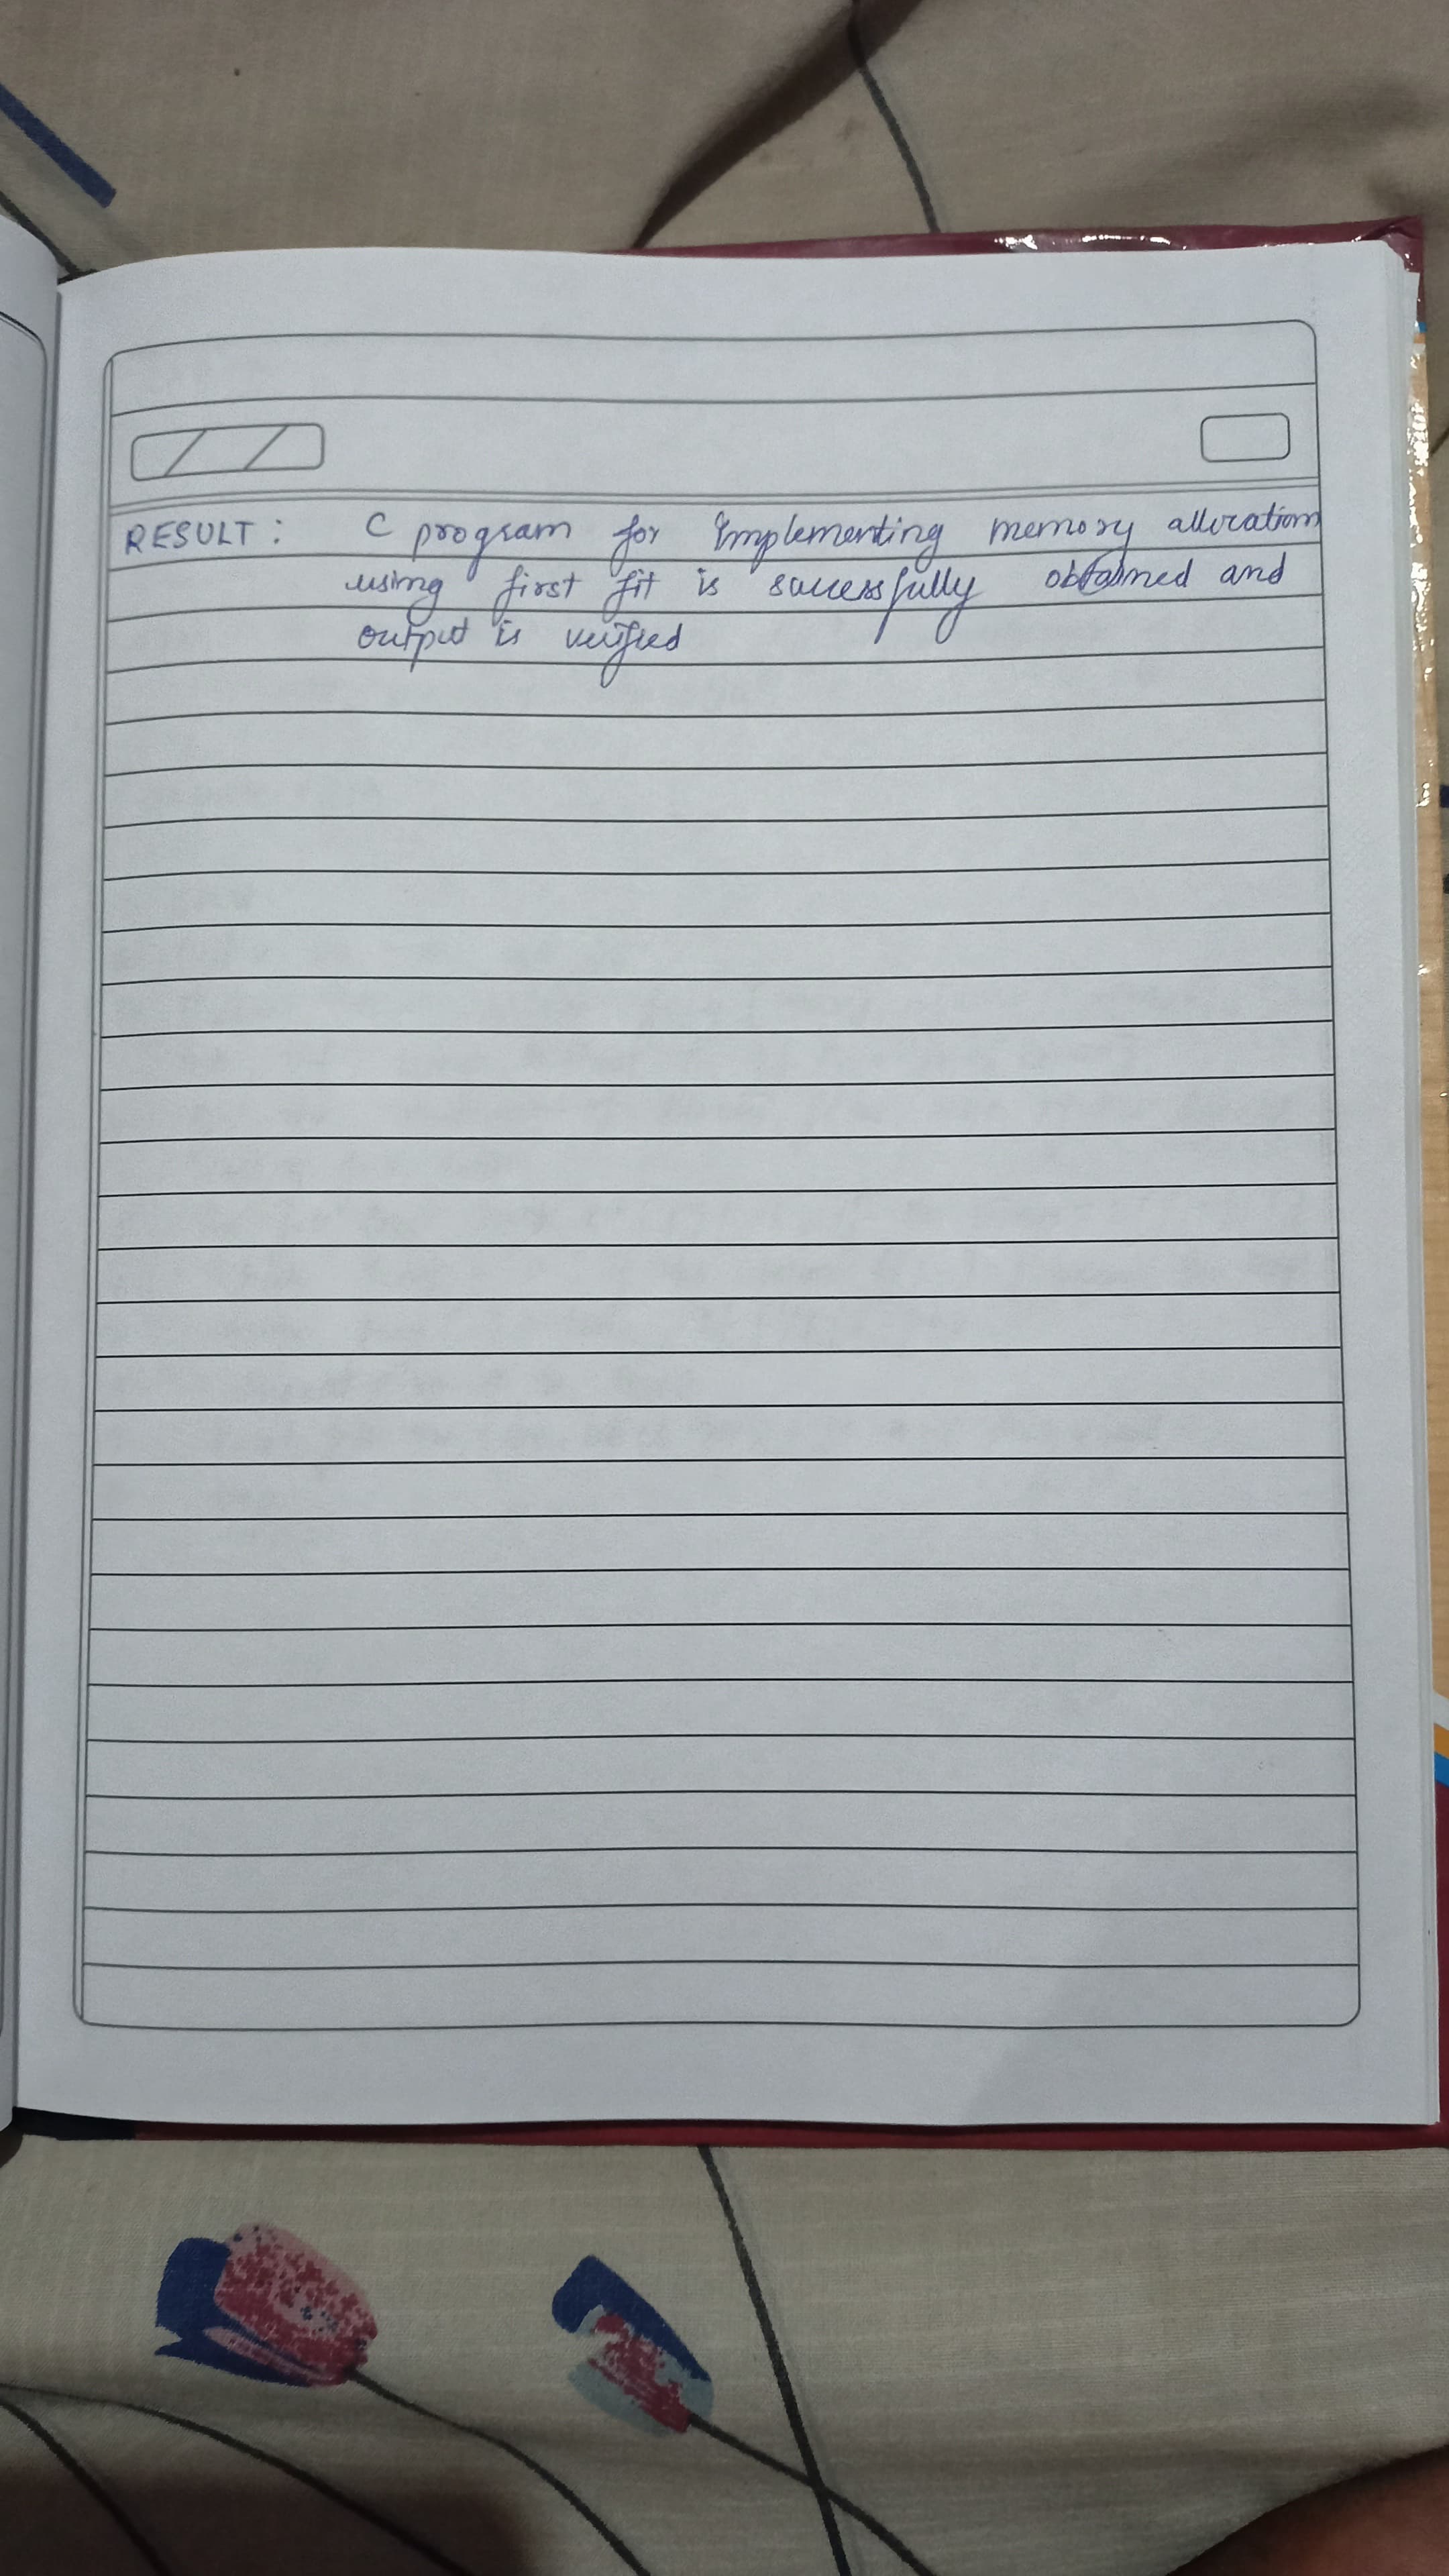 RESULT: C program for Implementing memory allocation
using first fit is successfully obtained and
output is verified